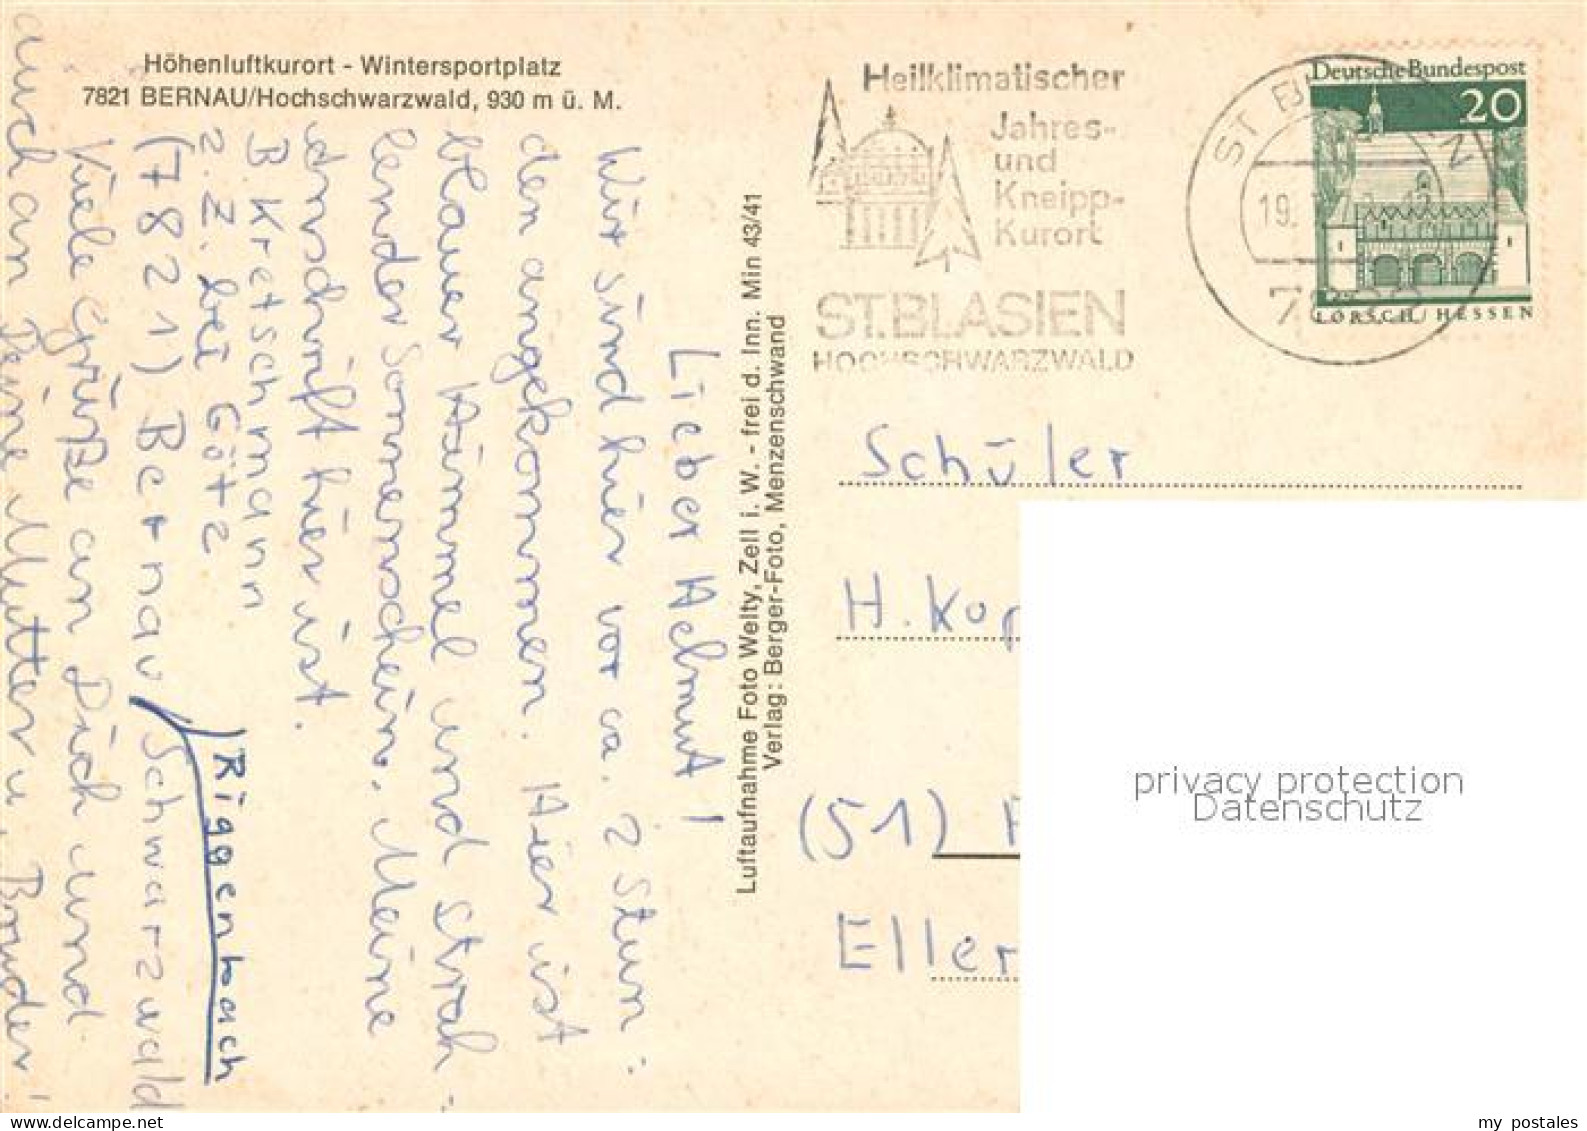 Höhenluftkurort - Wintersportplatz
7821 BERNAU/Hochschwarzwald, 930 m ü. M.
Lieber Helmut!
Wir sind hier vor ca. 2 Stun-
den angekommen. Hier ist
blauer Himmel und strah-
lender Sonnenschein. Meine
Anschrift hier ist.
B Kretschmann
z. Z. bei Götz
(7821) Bernau/Schwarzwald
Riggenbach
Viele Grüße an Dich und
auch an Deine Mutter u. Bruder!
Luftaufnahme Foto Welty, Zell i. W. - frei d. Inn. Min 43/41
Verlag: Berger-Foto, Menzenschwand
Heilklimatischer
Jahres-
und
Kneipp-
Kurort
ST.BLASIEN
HOCHSCHWARZWALD
ST. BL
N
19.
78
Deutsche Bundespost
20
LORSCH/HESSEN
Schüler
H. Kop
(51)
Eller
privacy protection
Datenschutz
my postales